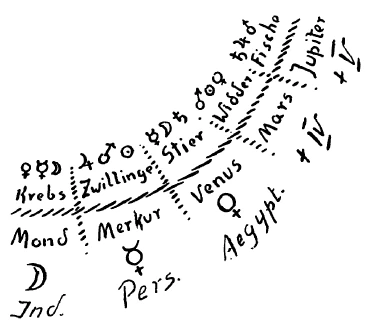 ♀☿☽
Krebs
Mond
☽
Ind.
♃♂☉
Zwillinge
Merkur
☿
Pers.
☿☽♄
Stier
Venus
♀
Aegypt.
♂☉♀
Widder
Mars
+ IV
♄♃♂
Fische
Jupiter
+ V